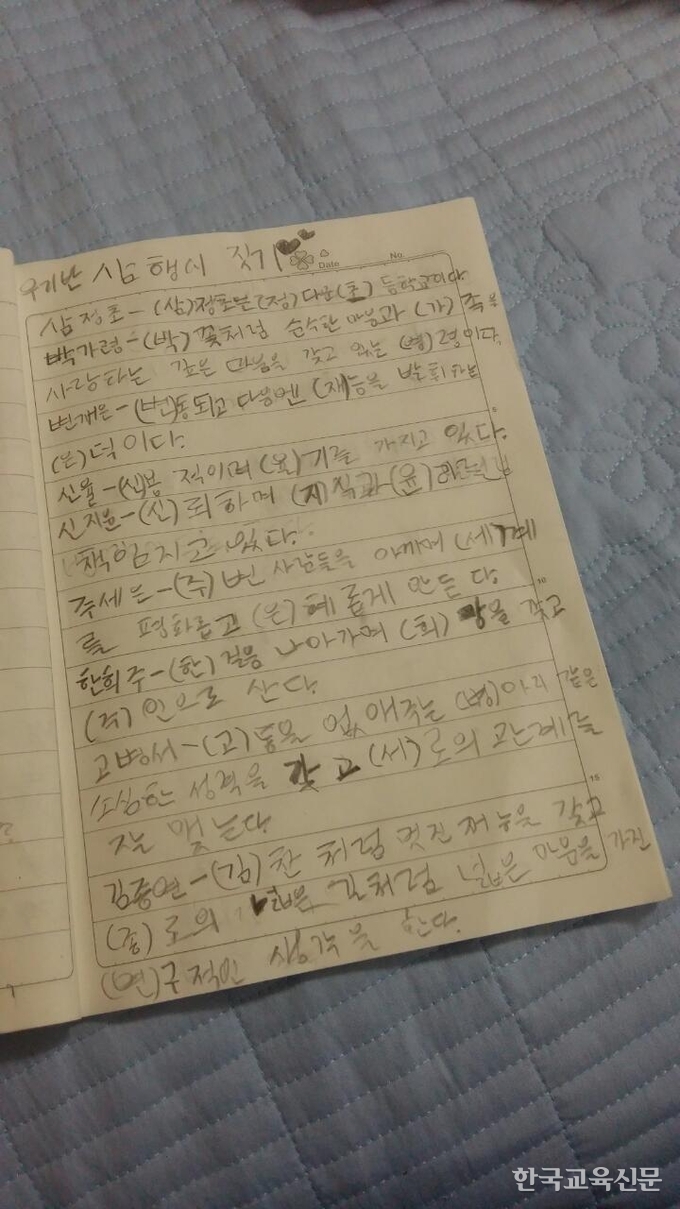 우리반 삼행시 짓기
Date No
삼정초-(삼)정초는 (정)다운 (초)등학교이다
박가령-(박)꽃처럼 순수한 마음과 (가)족을
사랑하는 깊은 마음을 갖고 있는 (령)령이다.
변재은-(변)동되고 다음엔 (재)능을 발휘하는
(은)덕이다.
신율-(신)봉적이며 (율)기를 가지고 있다.
신지윤-(신)뢰하며 (지)식과 (윤)
책임지고 있다.
주세은-(주)변 사람들을 아끼며 (세)계
를 평화롭고 (은)혜롭게 만든다
10
한희주-(한)걸음 나아가며 (희)망을 갖고
(주)인으로 산다
고병서-(고)통을 없애주는 (병)아리 같은
소심한 성격을 갖고 (서)로의 관계를
15
잘 맺는다
김종연-(김)찬처럼 멋진 재능을 갖고
(종)로의 넓은 길처럼 넓은 마음을 가진
(연)구적인 생각을 한다.
한국교육신문